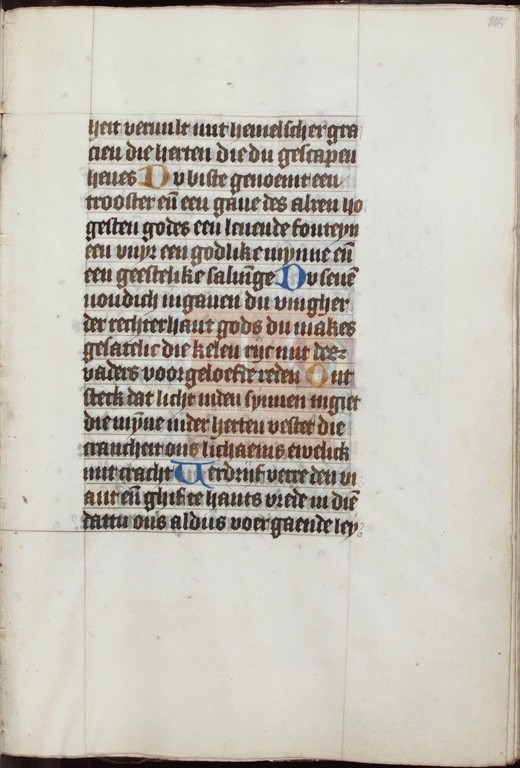 116
heit veruult mit hemelscher gra
cien die herten die du gescapen
heues Du biste genoemt een
trooster en̄ een gaue des alren ho
gesten godes een leuende fonteyn
een vuyr een godlike mynne en̄
een geestelike saluīge Du seuē
uoudich in gauen du vingher
der rechterhant gods du makes
gesatelic die kelen ryc mit des
vaders voorgeloefte reden Ont
steck dat licht inden synnen in giet
die mȳne in der herten vestet die
crancheit ons lichaems ewelick
mit cracht Verdrijf verre den vi
ant en̄ ghif te hants vrede in diē
dattu ons aldus voergaende ley